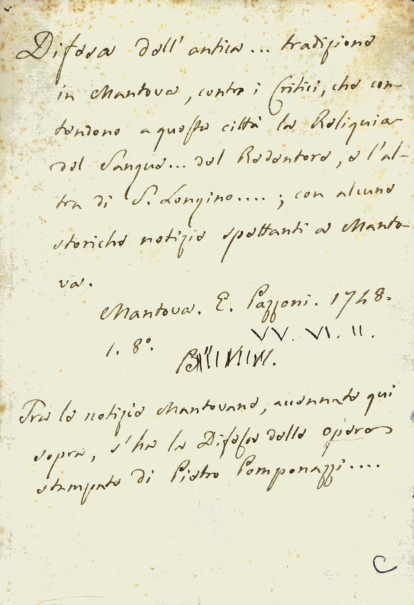 Difesa dell'antica... tradizione
in Mantova, contro i Critici, che con-
tendono a questa città la Reliquia
del Sangue... del Redentore, e l'al-
tra di S. Longino....; con alcune
storiche notizie spettanti a Manto-
va.
Mantova. E. Pazzoni. 1748.
1. 8°. VV. VI. II.
Tra le notizie Mantovane, accennate qui
sopra, s'ha la Difesa delle opere
stampate di Pietro Pomponazzi....
C